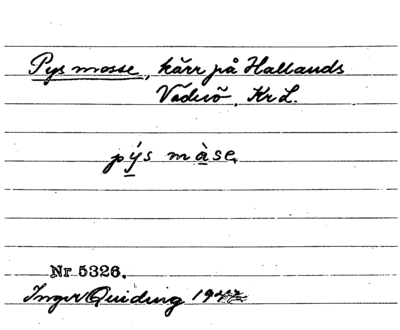 Pys mosse, kärr på Hallands
Väderö, Kr L.
pýs màse,
Nr 5326.
Inger Quiding 19